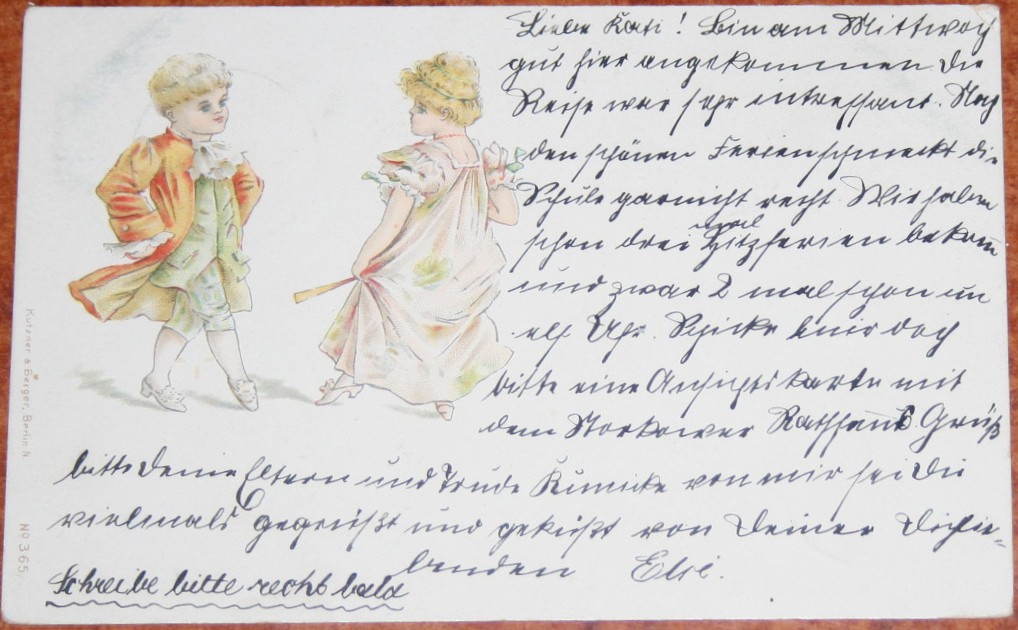 Liebe Kati! Bin am Mittwoch
gut hier angekommen die
Reise war sehr intressant. Nach
den schönen Ferien schmeckt die
Schule garnicht recht. Wir haben
schon drei mal Hitzferien bekom̅
und zwar 2 mal schon um
elf Uhr. Schicke mir doch
bitte eine Ansichtskarte mit
dem Storkower Rathhaus. Grüß
bitte Deine Eltern und Trude Kunicke von mir sei Du
vielmals gegrüßt und geküßt von Deiner Dichlie=
benden Elsi.
Schreibe bitte rechts bald
Kutzner & Berger, Berlin N.
No 365.